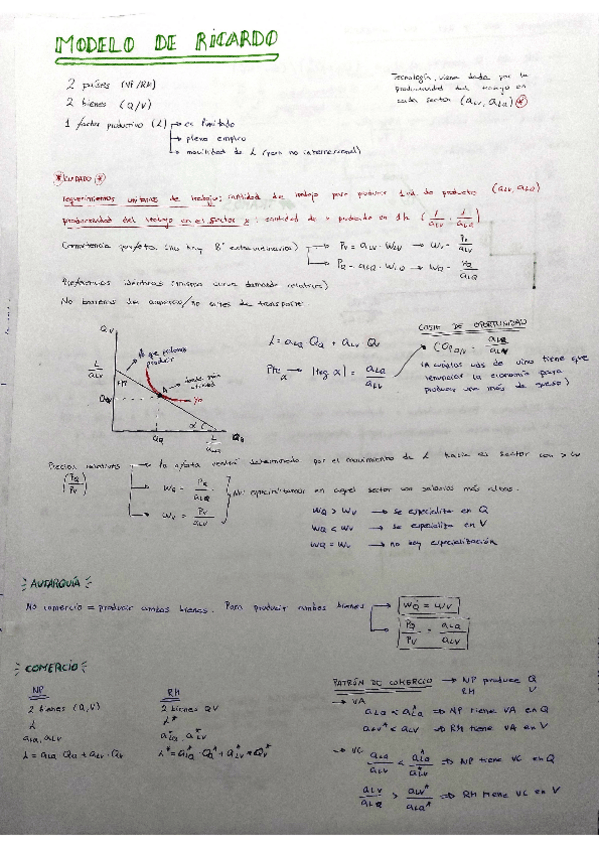 MODELO DE RICARDO
2 países (NP/RH)
2 bienes (Q/V)
1 factor productivo (L) → es limitado
→ pleno empleo
→ movilidad de L (pero no internacional)
Tecnología, viene dada por la
productividad del trabajo en
cada sector (aLV, aLQ) *
* CUIDADO *
requerimientos unitarios de trabajo: cantidad de trabajo para producir 1 ud. de producto (aLV, aLQ)
productividad del trabajo en el sector x: cantidad de x producida en 1h (1/aLV, 1/aLQ)
Competencia perfecta (no hay Bº extraordinarios) → PV = aLV · WLV → WV = PV/aLV
→ PQ = aLQ · WLQ → WQ = PQ/aLQ
Preferencias idénticas (misma curva demanda relativa)
No barreras al comercio/no costes de transporte.
QV
L/aLV
QQ
L/aLQ
A
α
L = aLQ QQ + aLV QV
|tg α| = aLQ/aLV
COSTE DE OPORTUNIDAD
COQ/V = aLQ/aLV
(A cuántas uds de vino tiene que
renunciar la economía para
producir una más de queso)
Precios relativos → la oferta vendrá determinada por el movimiento de L hacia el sector con > w
(PQ/PV)
→ WQ = PQ/aLQ
→ WV = PV/aLV
se especializarán en aquel sector con salarios más altos.
WQ > WV → se especializa en Q
WQ < WV → se especializa en V
WQ = WV → no hay especialización
AUTARQUÍA
No comercio = producir ambos bienes. Para producir ambos bienes → WQ = WV
→ PQ/PV = aLQ/aLV
COMERCIO
NP
2 bienes (Q,V)
L
aLQ, aLV
L = aLQ QQ + aLV · QV
RH
2 bienes QV
L*
a*LQ, a*LV
L* = a*LQ · QQ* + a*LV · QV*
PATRÓN DE COMERCIO → NP produce Q
RH V
→ VA
aLQ < a*LQ ⇒ NP tiene VA en Q
aLV* < aLV ⇒ RH tiene VA en V
→ VC
aLQ/aLV < a*LQ/a*LV ⇒ NP tiene VC en Q
aLV/aLQ > aLV*/aLQ* ⇒ RH tiene VC en V